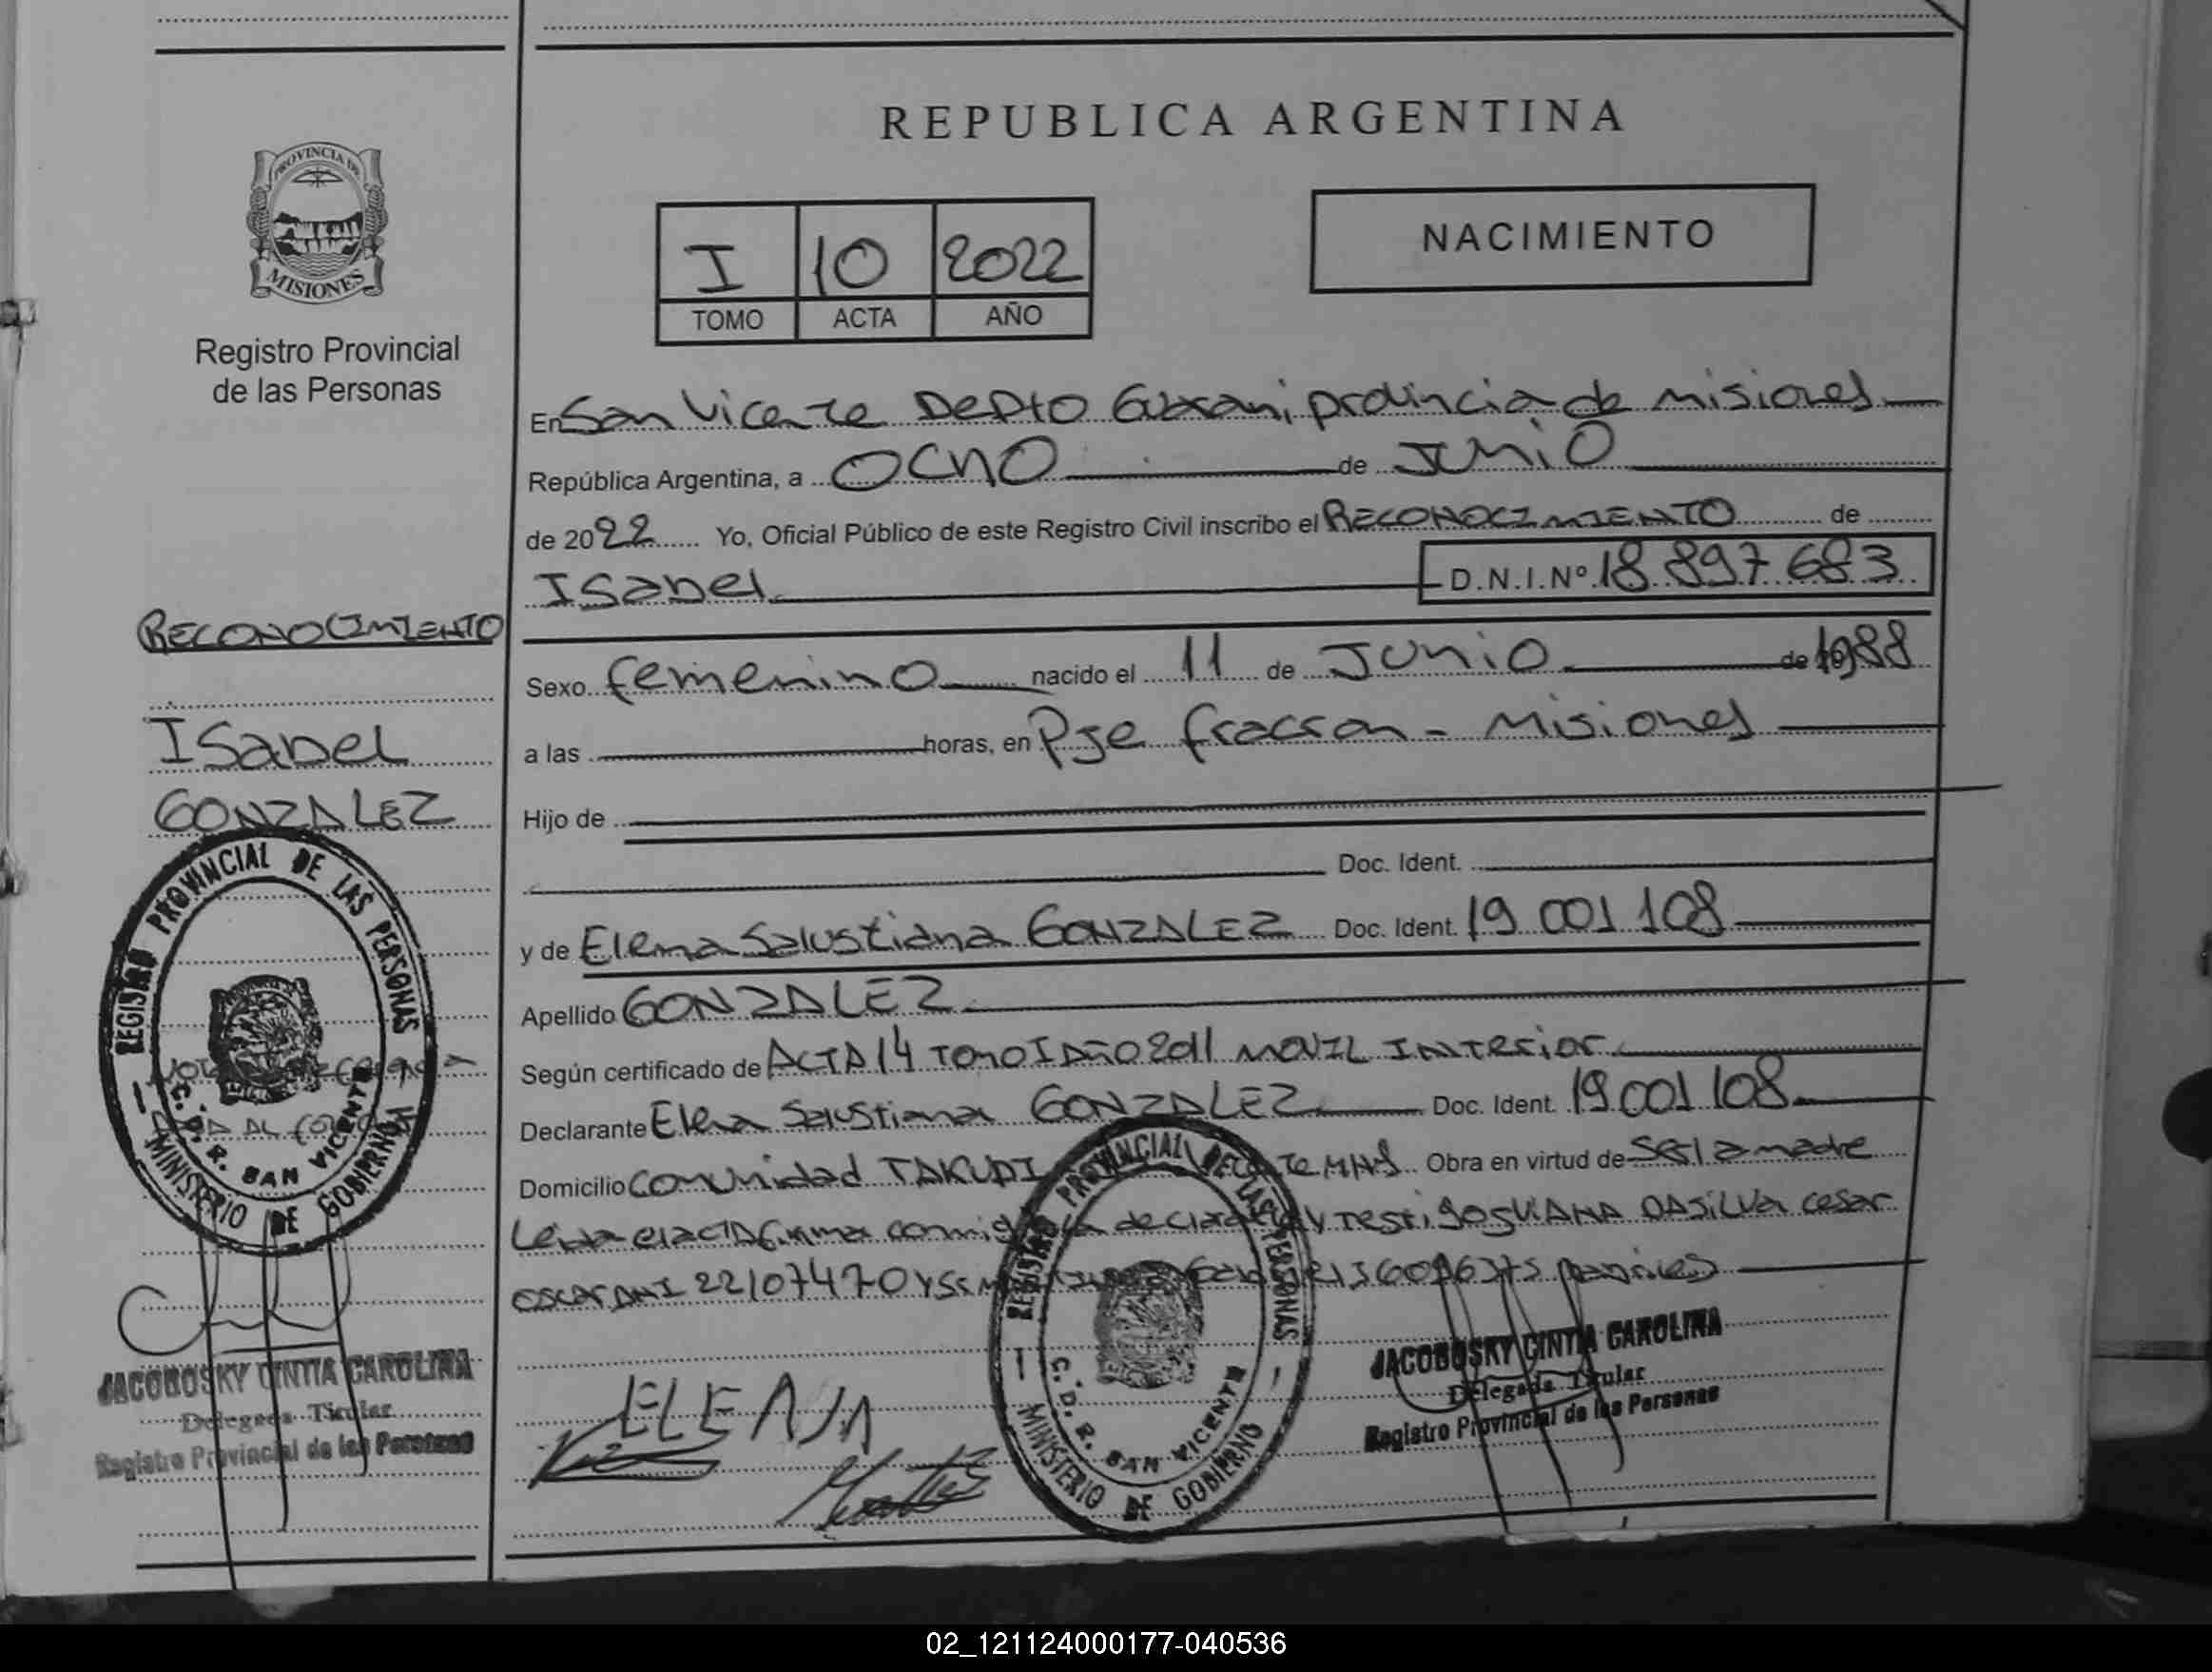 REPUBLICA ARGENTINA
PROVINCIA DE
MISIONES
Registro Provincial
de las Personas
I 10 2022
TOMO ACTA AÑO
NACIMIENTO
En San Vicente Depto Guarani provincia de Misiones
República Argentina, a OCHO de JUNIO
de 2022 Yo, Oficial Público de este Registro Civil inscribo el RECONOCIMIENTO de
ISabel D.N.I.Nº 18 897 683
Sexo femenino nacido el 11 de JUNIO de 1988
a las horas, en Pje fracran - Misiones
Hijo de
Doc. Ident.
y de Elena Salustiana GONZALEZ Doc. Ident. 19 001 108
Apellido GONZALEZ
Según certificado de ACTA 14 TOMO I AÑO 2011 MOVIL INTerior
Declarante Elena Salustiana GONZALEZ Doc. Ident. 19.001 108
Domicilio Comunidad TAKUAPI Obra en virtud de ser la madre
Leida el acta firma conmigo la declarante y testigos VIANA DASILVA cesar
oscar DNI 22107470 Y
ELENA
RECONOCIMIENTO
ISabel
GONZALEZ
REGISTRO PROVINCIAL DE LAS PERSONAS
C. D. R. SAN VICENTE
MINISTERIO DE GOBIERNO
JACOBOSKY CINTIA CAROLINA
Delegada Titular
Registro Provincial de las Personas
REGISTRO PROVINCIAL DE LAS PERSONAS
C. D. R. SAN VICENTE
MINISTERIO DE GOBIERNO
JACOBOSKY CINTIA CAROLINA
Delegada Titular
Registro Provincial de las Personas
02_121124000177-040536